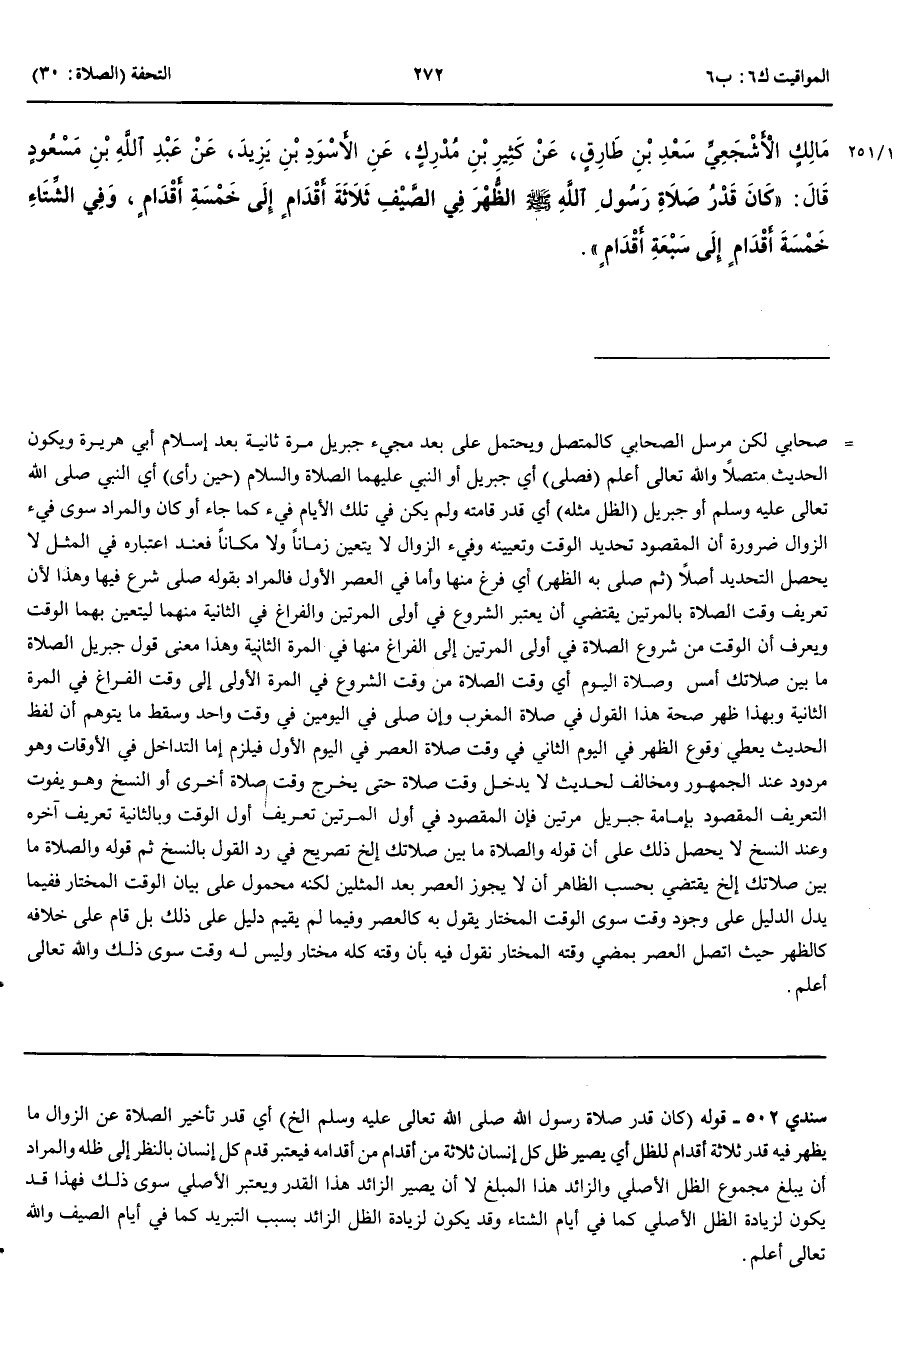 المواقيت ك٦: ب٦ ٢٧٢ التحفة (الصلاة: ٣٠)
٢٥١/١ مَالِكٍ الْأَشْجَعِيِّ سَعْدِ بْنِ طَارِقٍ، عَنْ كَثِيرِ بْنِ مُدْرِكٍ، عَنِ الأَسْوَدِ بْنِ يَزِيدَ، عَنْ عَبْدِ ٱللَّهِ بْنِ مَسْعُودٍ
قَالَ: «كَانَ قَدْرُ صَلَاةِ رَسُولِ ٱللَّهِ ﷺ الظُّهْرَ فِي الصَّيْفِ ثَلَاثَةَ أَقْدَامٍ إِلَى خَمْسَةِ أَقْدَامٍ، وَفِي الشِّتَاءِ
خَمْسَةَ أَقْدَامٍ إِلَى سَبْعَةِ أَقْدَامٍ».
= صحابي لكن مرسل الصحابي كالمتصل ويحتمل على بعد مجيء جبريل مرة ثانية بعد إسلام أبي هريرة ويكون
الحديث متصلاً والله تعالى أعلم (فصلى) أي جبريل أو النبي عليهما الصلاة والسلام (حين رأى) أي النبي صلى الله
تعالى عليه وسلم أو جبريل (الظل مثله) أي قدر قامته ولم يكن في تلك الأيام فيء كما جاء أو كان والمراد سوى فيء
الزوال ضرورة أن المقصود تحديد الوقت وتعيينه وفيء الزوال لا يتعين زماناً ولا مكاناً فعند اعتباره في المثل لا
يحصل التحديد أصلاً (ثم صلى به الظهر) أي فرغ منها وأما في العصر الأول فالمراد بقوله صلى شرع فيها وهذا لأن
تعريف وقت الصلاة بالمرتين يقتضي أن يعتبر الشروع في أولى المرتين والفراغ في الثانية منهما ليتعين بهما الوقت
ويعرف أن الوقت من شروع الصلاة في أولى المرتين إلى الفراغ منها في المرة الثانية وهذا معنى قول جبريل الصلاة
ما بين صلاتك أمس وصلاة اليوم أي وقت الصلاة من وقت الشروع في المرة الأولى إلى وقت الفراغ في المرة
الثانية وبهذا ظهر صحة هذا القول في صلاة المغرب وإن صلى في اليومين في وقت واحد وسقط ما يتوهم أن لفظ
الحديث يعطي وقوع الظهر في اليوم الثاني في وقت صلاة العصر في اليوم الأول فيلزم إما التداخل في الأوقات وهو
مردود عند الجمهور ومخالف لحديث لا يدخل وقت صلاة حتى يخرج وقت صلاة أخرى أو النسخ وهو يفوت
التعريف المقصود بإمامة جبريل مرتين فإن المقصود في أول المرتين تعريف أول الوقت وبالثانية تعريف آخره
وعند النسخ لا يحصل ذلك على أن قوله والصلاة ما بين صلاتك إلخ تصريح في رد القول بالنسخ ثم قوله والصلاة ما
بين صلاتك إلخ يقتضي بحسب الظاهر أن لا يجوز العصر بعد المثلين لكنه محمول على بيان الوقت المختار ففيما
يدل الدليل على وجود وقت سوى الوقت المختار يقول به كالعصر وفيما لم يقيم دليل على ذلك بل قام على خلافه
كالظهر حيث اتصل العصر بمضي وقته المختار نقول فيه بأن وقته كله مختار وليس له وقت سوى ذلك والله تعالى
أعلم.
سندي ٥٠٢ - قوله (كان قدر صلاة رسول الله صلى الله تعالى عليه وسلم الخ) أي قدر تأخير الصلاة عن الزوال ما
يظهر فيه قدر ثلاثة أقدام للظل أي يصير ظل كل إنسان ثلاثة من أقدام من أقدامه فيعتبر قدم كل إنسان بالنظر إلى ظله والمراد
أن يبلغ مجموع الظل الأصلي والزائد هذا المبلغ لا أن يصير الزائد هذا القدر ويعتبر الأصلي سوى ذلك فهذا قد
يكون لزيادة الظل الأصلي كما في أيام الشتاء وقد يكون لزيادة الظل الزائد بسبب التبريد كما في أيام الصيف والله
تعالى أعلم.